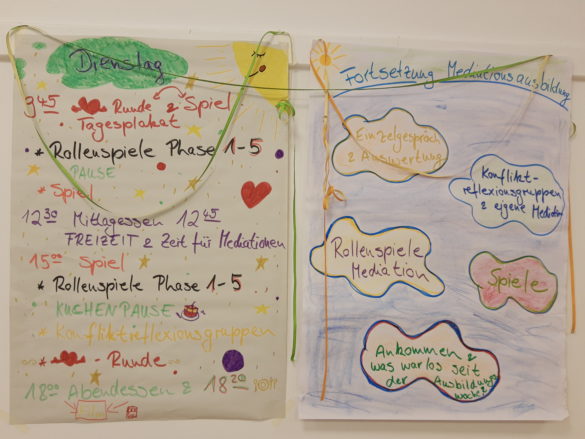 Dienstag
9 45 Runde & Spiel
• Tagesplakat
* Rollenspiele Phase 1-5
PAUSE
* Spiel
12 30 Mittagessen 12 45
FREIZEIT & Zeit für Mediationen
15 00 Spiel
* Rollenspiele Phase 1-5
KUCHENPAUSE
* Konfliktreflexionsgruppen
* - Runde
18 00 Abendessen & 18 20
Fortsetzung Mediationsausbildung
Einzelgespräch
& Auswertung
Konflikt-
reflexionsgruppen
& eigene Mediation
Rollenspiele
Mediation
Spiele
Ankommen &
was war los seit
der Ausbildungs
woche?